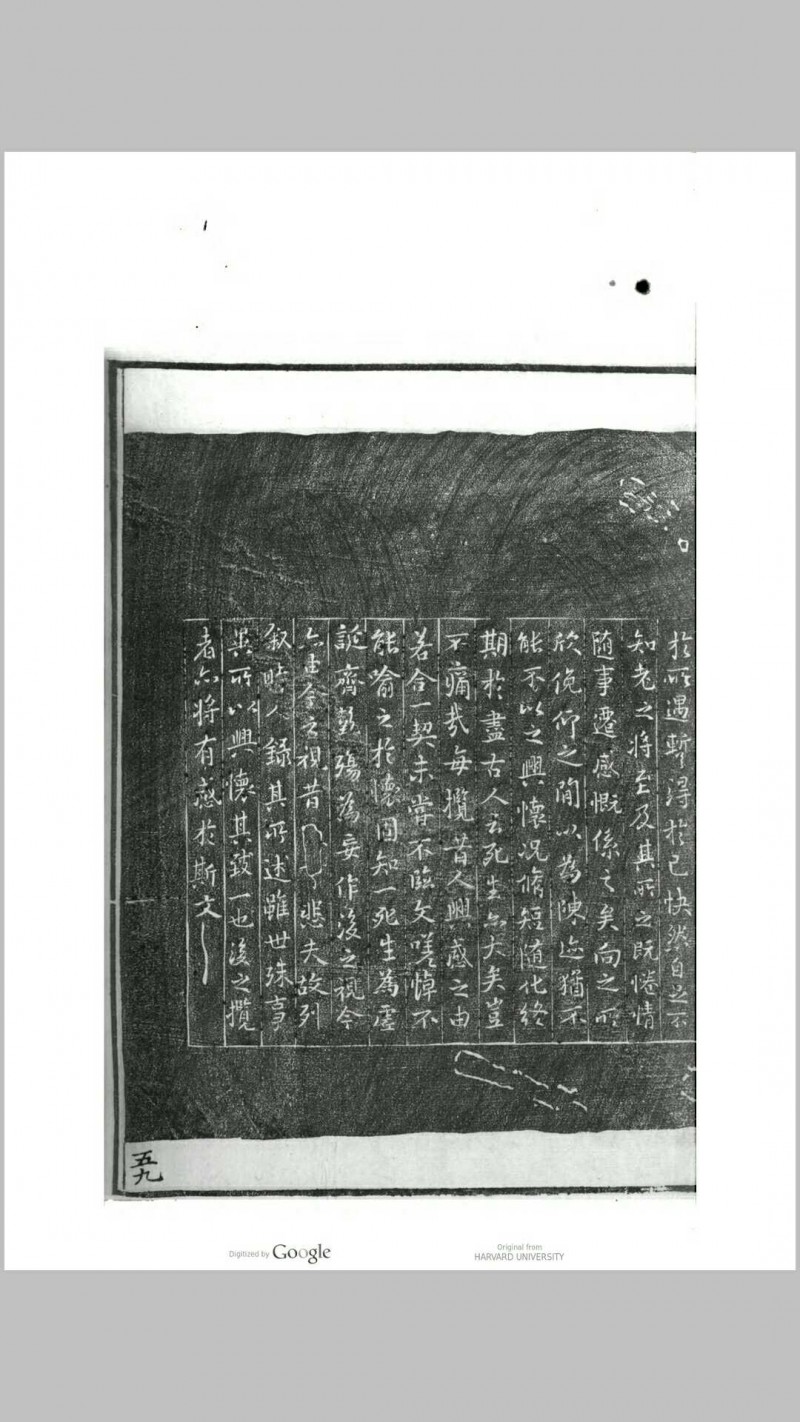 於所遇蹔得於己快然自足不
知老之將至及其所之既惓情
隨事遷感慨係之矣向之所
欣俛仰之閒以為陳迹猶不
能不以之興懷況脩短隨化終
期於盡古人云死生亦大矣豈
不痛哉每攬昔人興感之由
若合一契未嘗不臨文嗟悼不
能喻之於懷固知一死生為虛
誕齊彭殤為妄作後之視今
亦由今之視昔悲夫故列
叙時人錄其所述雖世殊事
異所以興懷其致一也後之攬
者亦將有感於斯文
五九
Digitized by Google
Original from
HARVARD UNIVERSITY